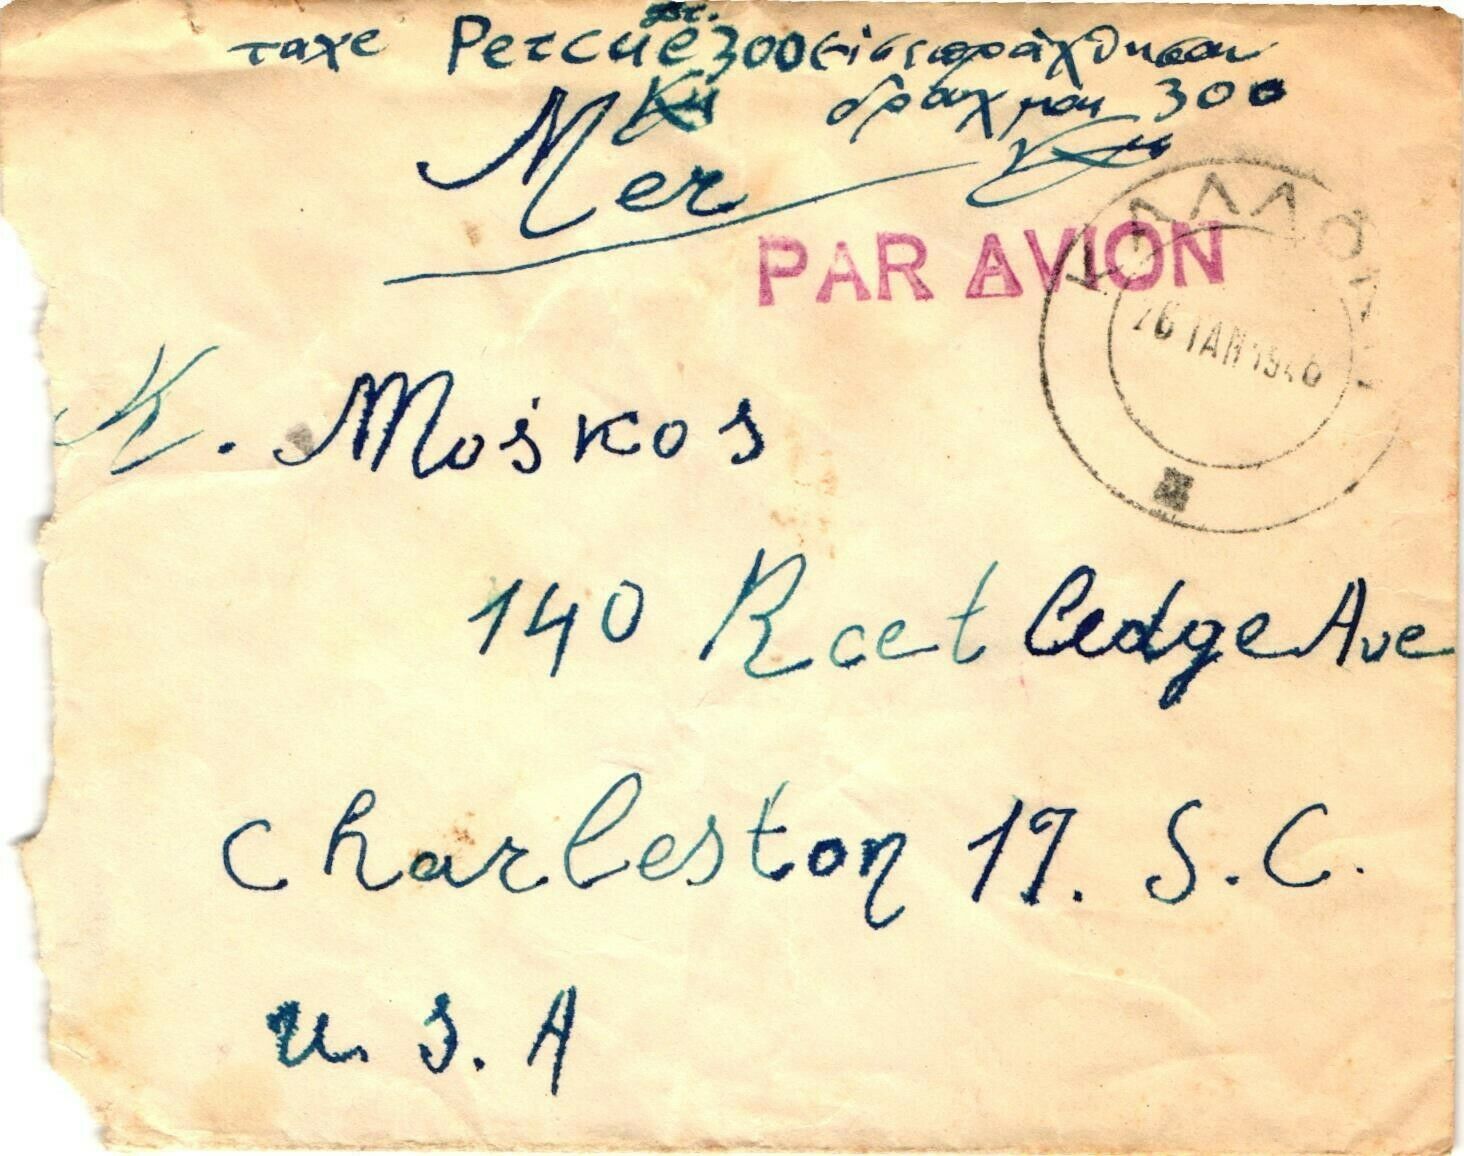 taxe Percue 300 εἰσεπράχθησαν
δραχμαι 300
Mer
PAR AVION
ΚΑΛΛΟΝΗ
26 ΙΑΝ 1946
K. Moskos
140 Rcet ledge Ave
Charleston 17. S. C.
U. S. A